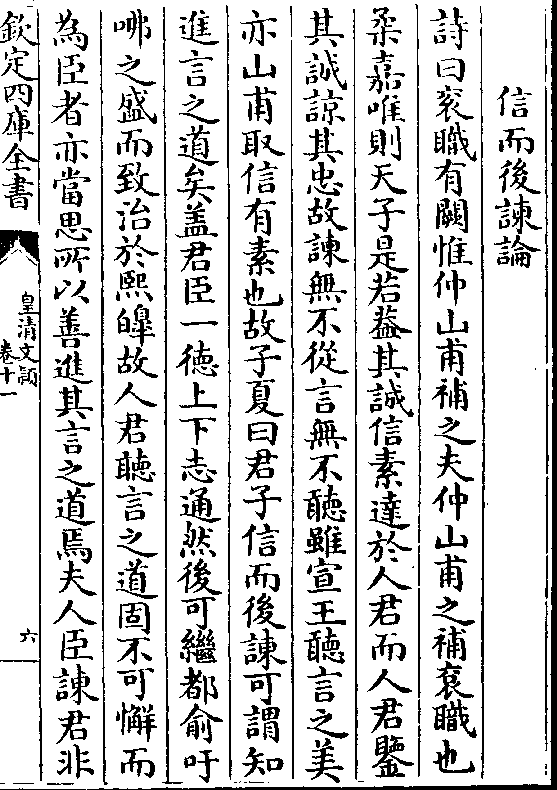 信而後諫論
詩曰袞職有闕惟仲山甫補之夫仲山甫之補袞職也
柔嘉唯則天子是若葢其誠信素達於人君而人君鑒
其誠諒其忠故諫無不從言無不聽雖宣王聽言之美
亦山甫取信有素也故子夏曰君子信而後諫可謂知
進言之道矣盖君臣一徳上下志通然後可繼都俞吁
咈之盛而致治於熙皥故人君聽言之道固不可懈而
為臣者亦當思所以善進其言之道焉夫人臣諫君非
欽定四庫全書
皇清文頴
卷十一
六